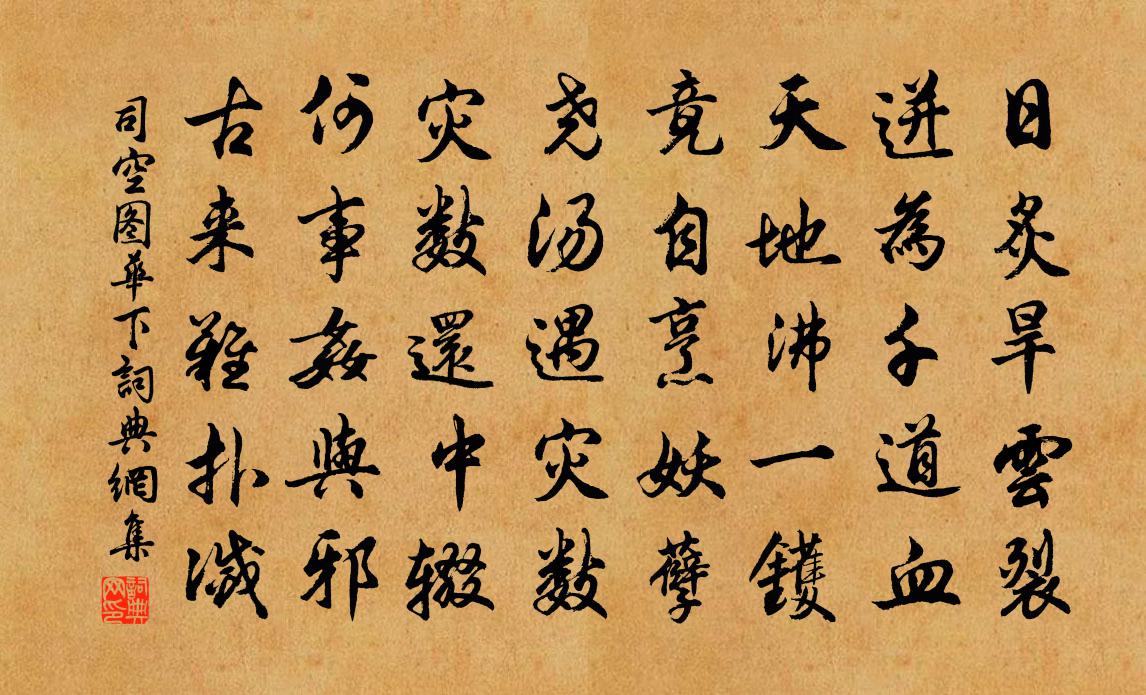 日炙旱雲裂
迸為千道血
天地沸一鑊
竟自烹妖孽
尧湯遇灾數
灾數還中辍
何事姦與邪
古来難扑滅
司空图華下詞典網集
詞典网印